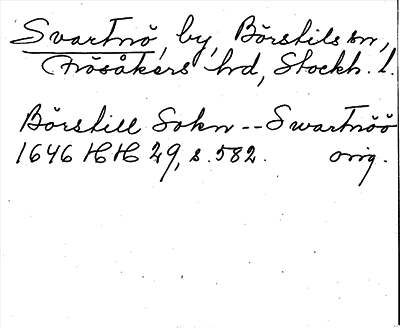 Svartnö, by, Börstils sn,
Frösåkers hd, Stockh. l.
Börstill Sokn -- Swartnöö
1646 HH 29, s. 582. orig.